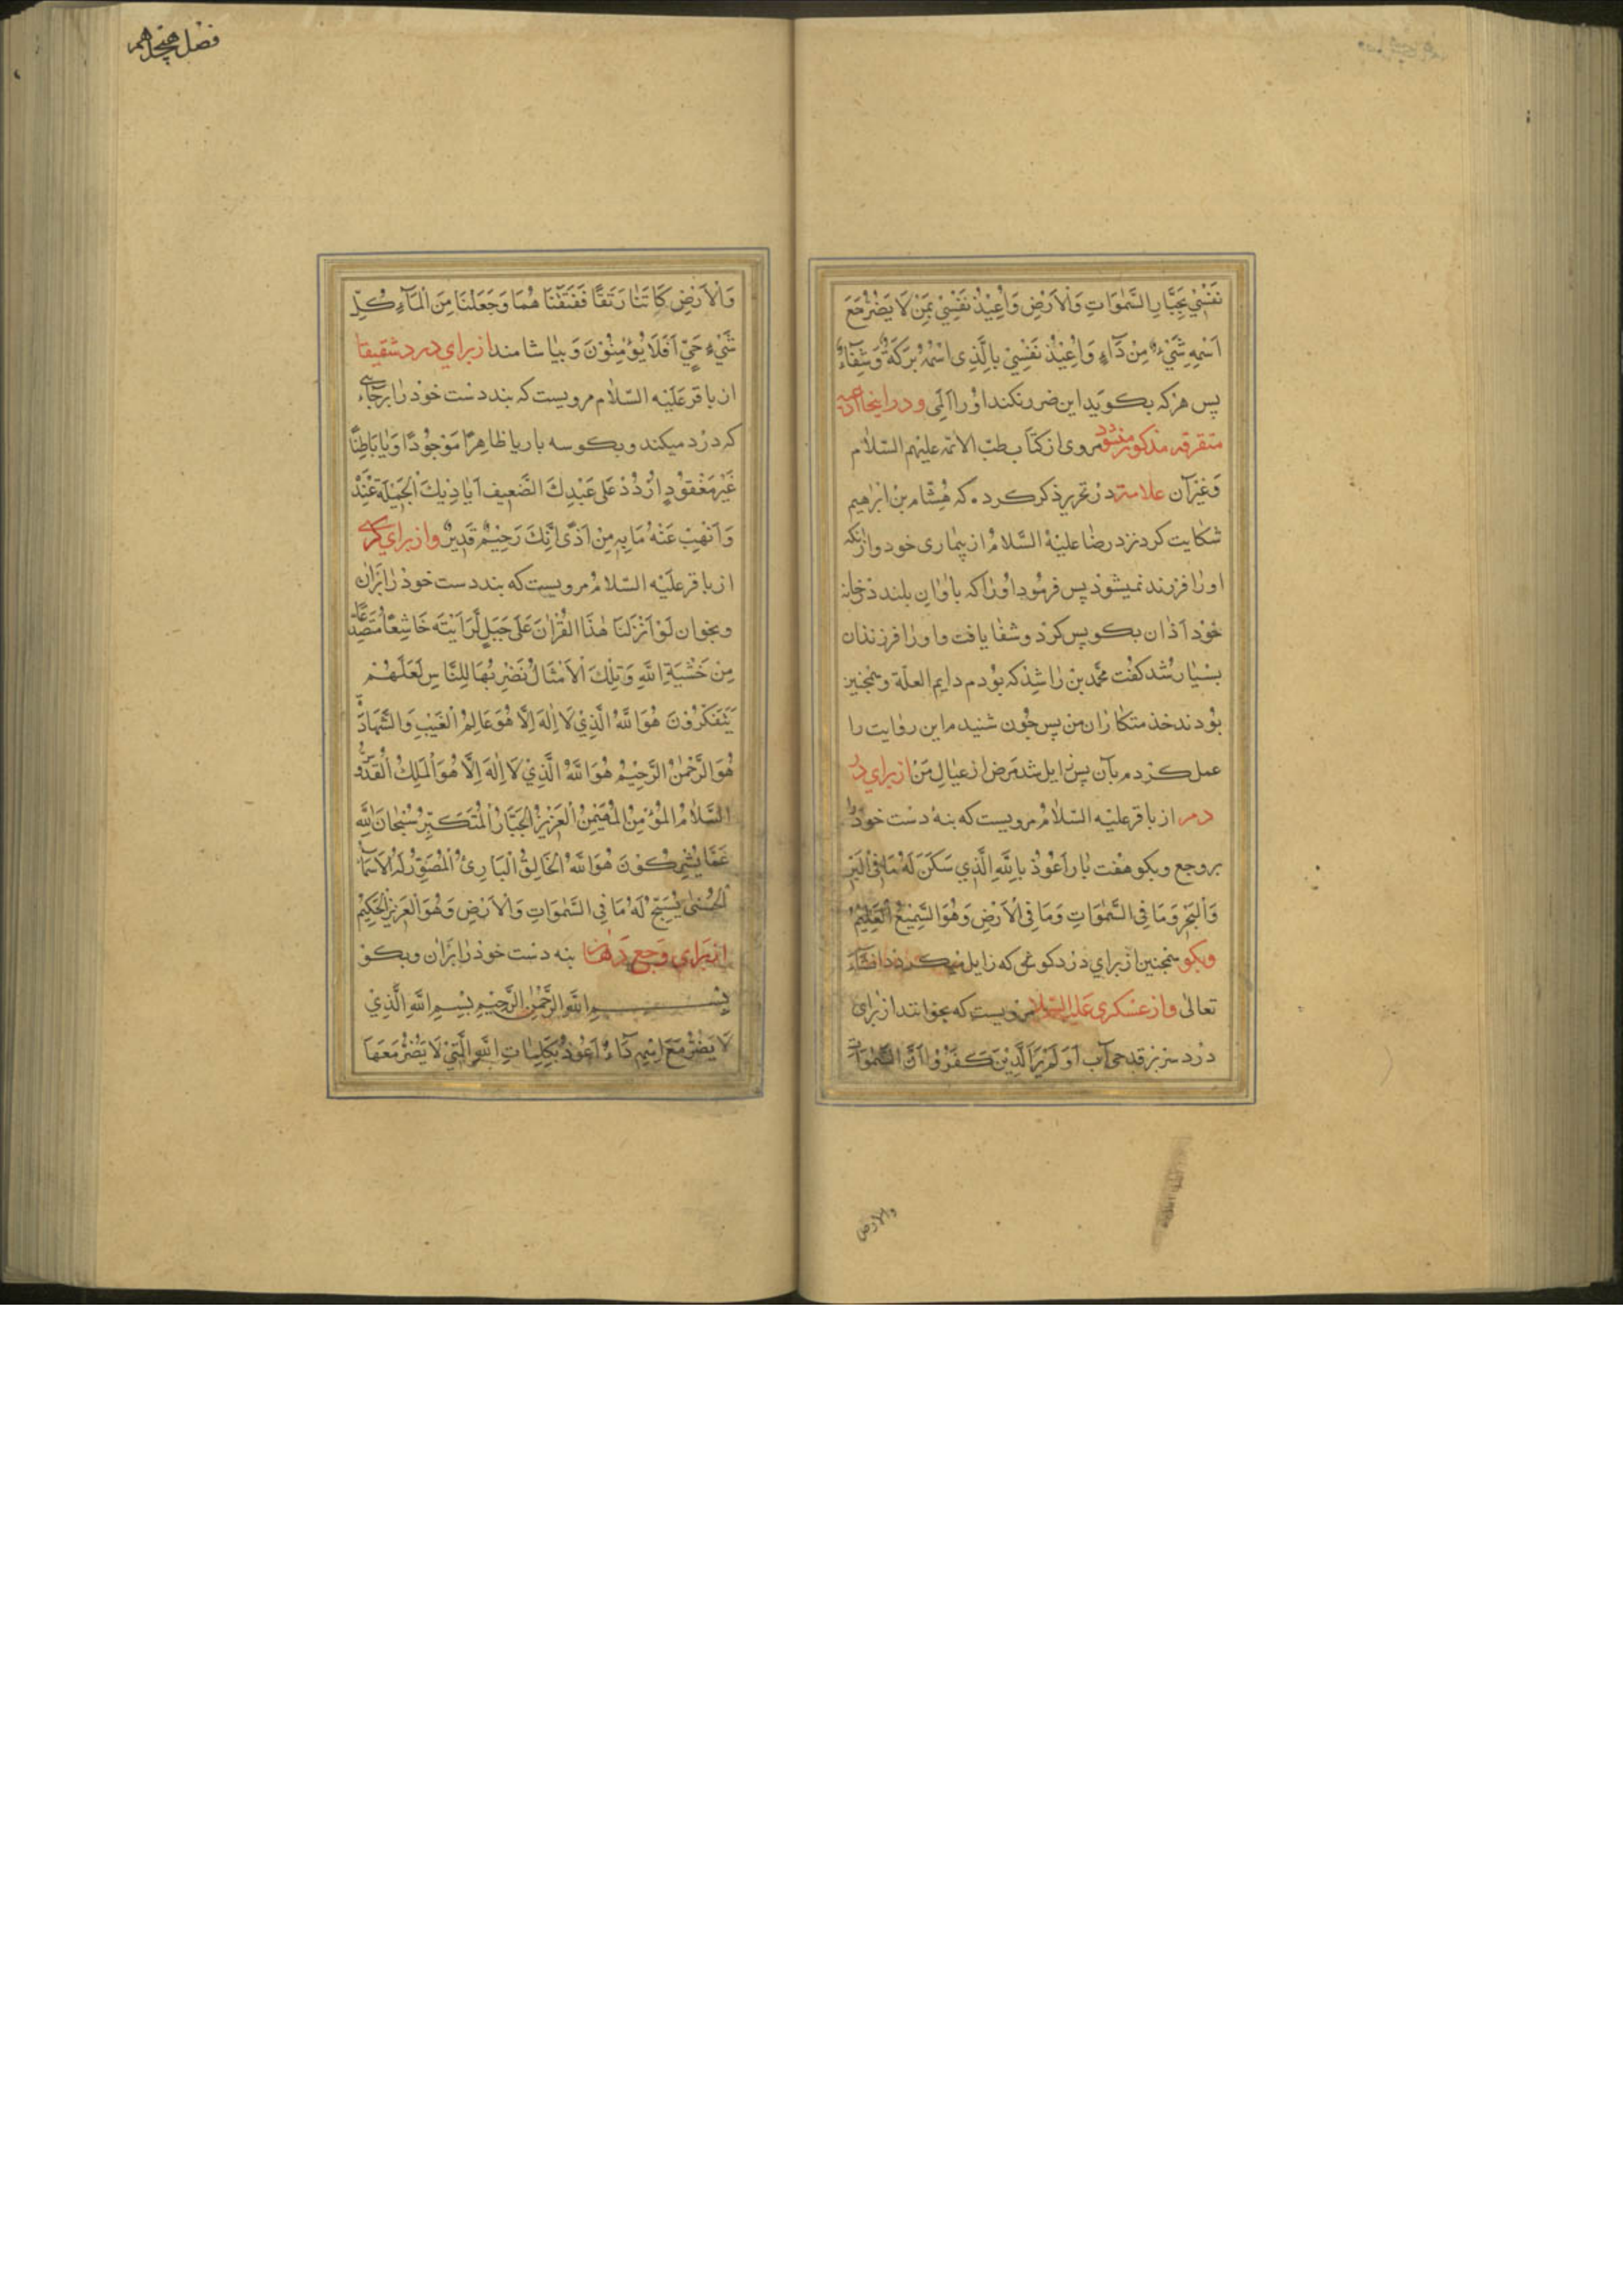 نَفْسِيْ بِجَبَّارِ السَّمٰوَاتِ وَالْاَرْضِ وَاُعِيْذُ نَفْسِيْ بِمَنْ لَا يَضُرُّ مَعَ
اِسْمِهِ شَيْءٌ مِنْ دَآءٍ وَاُعِيْذُ نَفْسِيْ بِالَّذِي اسْمُهُ بَرَكَةٌ وَشِفَآءٌ
پس هر که بکوید این ضرر نکند اورا المی و در اینجا ادعیه
متفرقه مذکور میشود مروی از کتاب طب الائمه علیهم السّلام
وَغیر آن علامتر در تحریر ذکر کرده که هُشام بن ابرهیم
شکایت کرد نزد رضا علیه السَّلامُ از بیماری خود و ازنکه
اورا فرزند نمیشوذ پس فرمُود اورا که باواز بلند در خانه
خوْد آذان بکو پس کرد و شفا یافت و اورا فرزندان
بسْیار شد کفت محمّد بن راشِذ که بوُدم دایم العلّة و همچنین
بوُدند خذمتکاران من پس چون شنیدم این روایت را
عمل کردم بآن پس زایل شد مَرض از عیالِ مَن از برای در
درد از باقر علیْه السّلامُ مرویست که بنهْ دست خود را
بر وجع وبکو هفت بار اَعُوْذُ بِاللّٰهِ الَّذِي سَكَنَ لَهُ مَا فِى الْبَرِّ
وَالْبَحْرِ وَمَا فِى السَّمٰوَاتِ وَمَا فِى الْاَرْضِ وَهُوَ السَّمِيْعُ الْعَلِيْمُ
وبکو همچنین از برای درد کوش که زایل میکردد انشآء
تعالٰی و از عسکری عَلیه السّلام مرویست که بخوانند از برای
درد سر بر قدحی آب اَوَلَمْ يَرَ الَّذِيْنَ كَفَرُوْا اَنَّ السَّمٰوَاتِ
والارض
فصل هجدهم
وَالْاَرْضِ كَانَتَا رَتَقًا فَفَتَقْنَا هُمَا وَجَعَلْنَا مِنَ الْمَآءِ كُلَّ
شَيْءٍ حَيٍّ اَفَلَا يُؤْمِنُوْنَ وَ بیاشامند از برای درد شقیقا
از باقر عَلَیْه السّلام مرویست که بنهد دست خود رابر جائے
که درد میکند و بکو سه بار یا ظاهِرًا مَوْجُوْدًا وَيَا بَاطِنًا
غَيْرَ مَفْقُوْدٍ اُرْدُدْ عَلٰى عَبْدِكَ الضَّعِيفِ اَيَادِيْكَ الْجَمِيْلَةَ عِنْدَهُ
وَاَذْهِبْ عَنْهُ مَا بِهِ مِنْ اَذًى اِنَّكَ رَحِيْمٌ قَدِيْرٌ و از برای کری
از باقر علَیْه السّلامُ مرویست که بنهد دست خوذ را بران
وبخوان لَوْ اَنْزَلْنَا هٰذَا الْقُرْاٰنَ عَلٰى جَبَلٍ لَّرَاَيْتَه خَاشِعًا مُتَصَدِّعًا
مِنْ خَشْيَةِ اللّٰهِ وَتِلْكَ الْاَمْثَالُ نَضْرِبُهَا لِلنَّاسِ لَعَلَّهُمْ
يَتَفَكَّرُوْنَ هُوَ اللّٰهُ الَّذِيْ لَا اِلٰهَ اِلَّا هُوَ عَالِمُ الْغَيْبِ وَالشَّهَادَةِ
هُوَ الرَّحْمٰنُ الرَّحِيْمُ هُوَ اللّٰهُ الَّذِيْ لَا اِلٰهَ اِلَّا هُوَ الْمَلِكُ الْقُدُّوْسُ
السَّلَامُ الْمُؤْمِنُ الْمُهَيْمِنُ الْعَزِيْزُ الْجَبَّارُ الْمُتَكَبِّرُ سُبْحَانَ اللّٰهِ
عَمَّا يُشْرِكُوْنَ هُوَ اللّٰهُ الْخَالِقُ الْبَارِئُ الْمُصَوِّرُ لَهُ الْاَسْمَاءُ
الْحُسْنٰى يُسَبِّحُ لَهُ مَا فِي السَّمٰوَاتِ وَالْاَرْضِ وَهُوَ الْعَزِيْزُ الْحَكِيْمُ
از برای وَجع دهَان بنه دست خود را بران وبکو
بِسْمِ اللّٰهِ الرَّحْمٰنِ الرَّحِيْمِ بِسْمِ اللّٰهِ الَّذِيْ
لَا يَضُرُّ مَعَ اِسْمِهِ دَاءٌ اَعُوْذُ بِكَلِمَاتِ اللّٰهِ الَّتِيْ لَا يَضُرُّ مَعَهَا